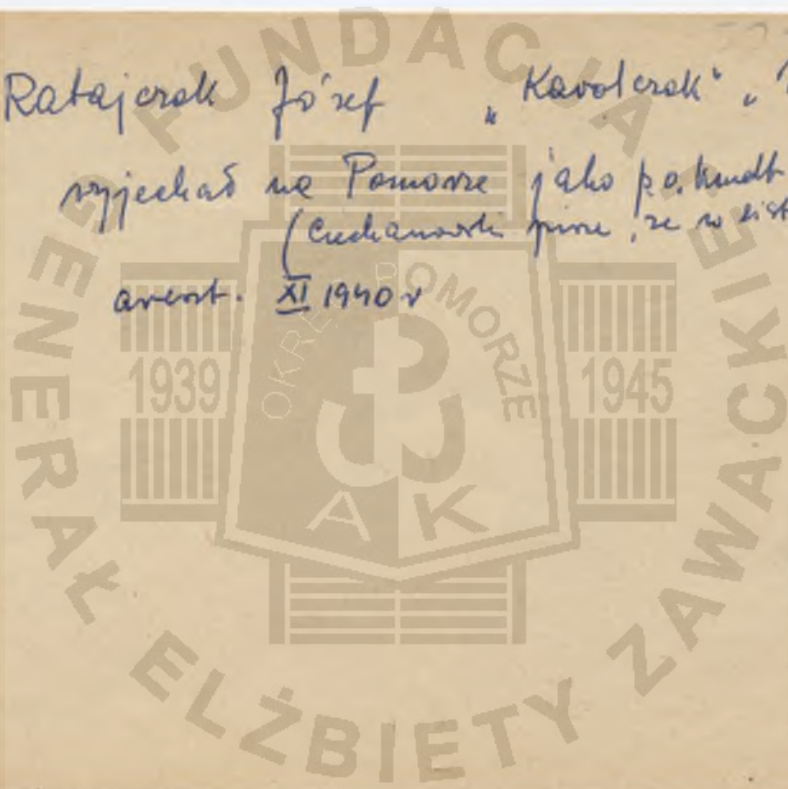 Ratajczak Józef „Karolczak" „
wyjechał na Pomorze jako p.o. kmdt
(Ciechanowski pisze, że w list
areszt. XI 1940 r
FUNDACJA
GENERAŁ ELŻBIETY ZAWACKIEJ
OKRĘG POMORZE
1939
1945
AK